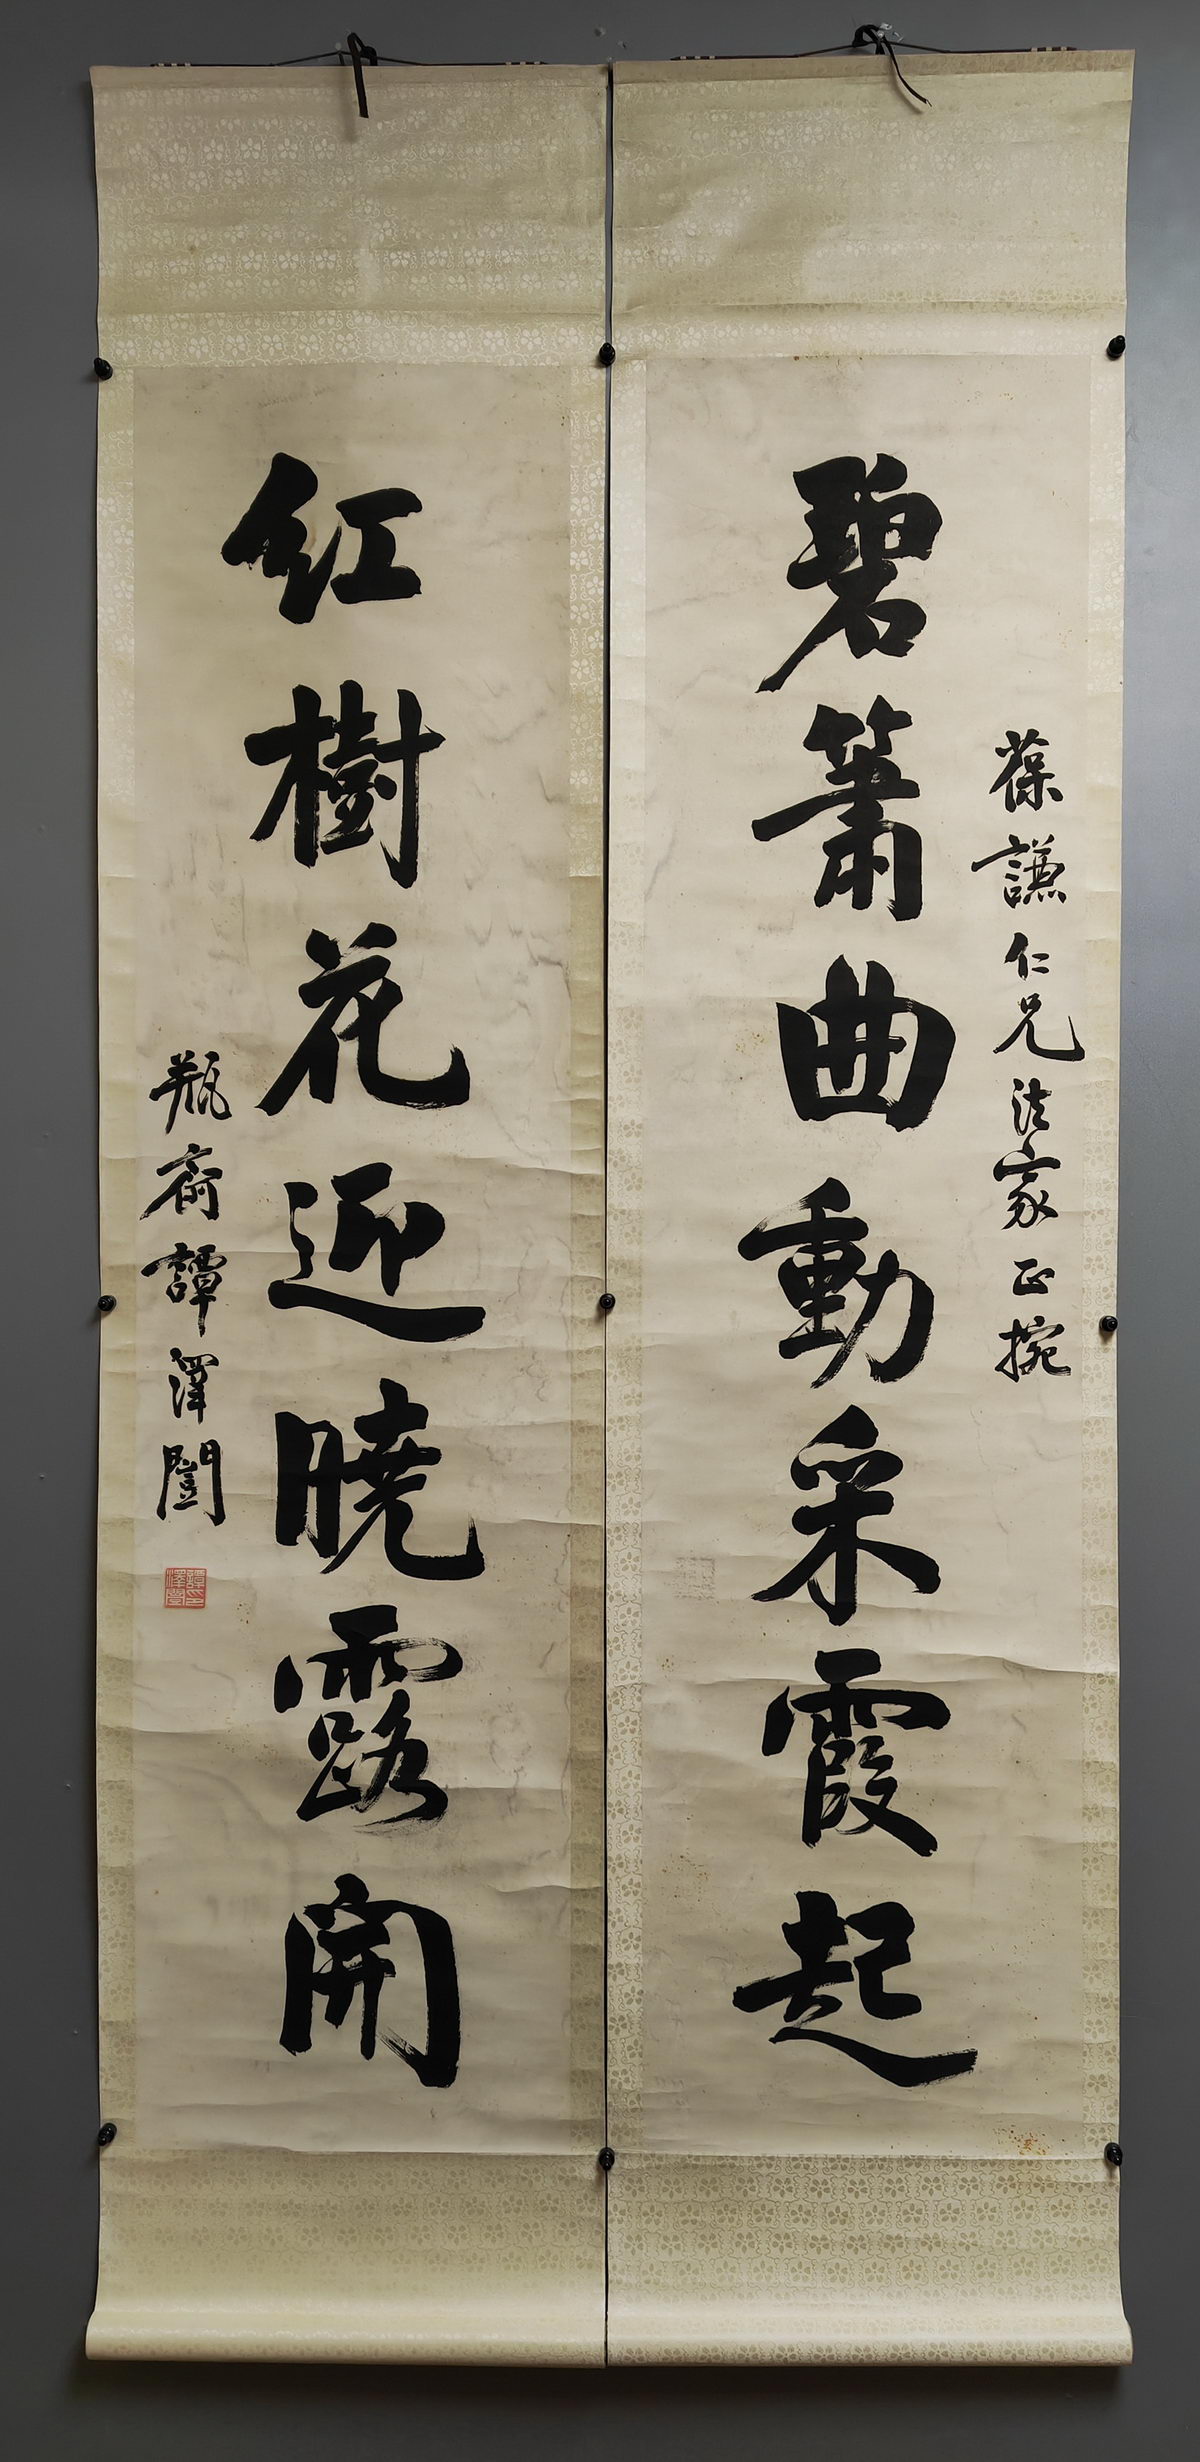 葆謙仁兄法家正捥
碧簫曲動采霞起
紅樹花迎曉露開
瓶齋譚澤闓
譚澤闓印